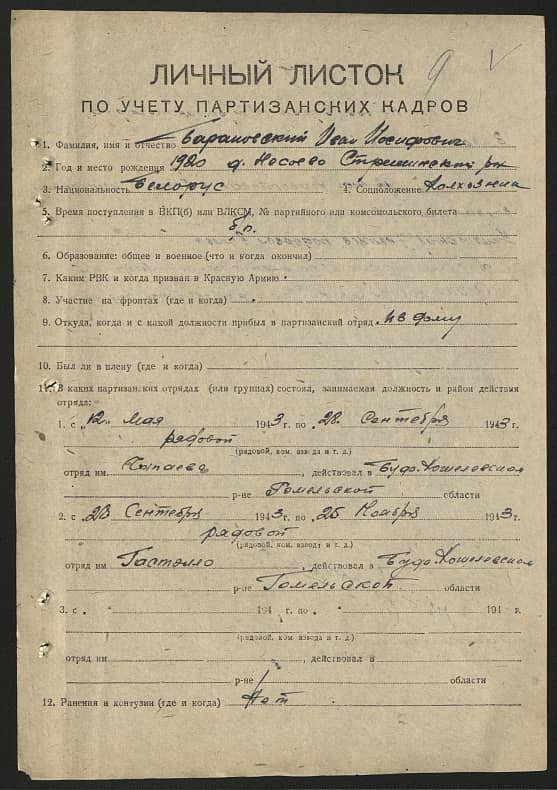 9 V
ЛИЧНЫЙ ЛИСТОК
ПО УЧЕТУ ПАРТИЗАНСКИХ КАДРОВ
1. Фамилия, имя и отчество Барановский Иван Иосифович
2. Год и место рождения 1920 д. Стрешинский р-н
3. Национальность Белорус 4. Соцположение Колхозник
5. Время поступления в ВКП(б) или ВЛКСМ, № партийного или комсомольского билета
б/п.
6. Образование: общее и военное (что и когда окончил)
7. Каким РВК и когда призван в Красную Армию
8. Участие на фронтах (где и когда)
9. Откуда, когда и с какой должности прибыл в партизанский отряд из дому
10. Был ли в плену (где и когда)
11. В каких партизанских отрядах (или группах) состоял, занимаемая должность и район действия
отряда:
1. с „12" мая 1943 г. по „28" Сентября 1943 г.
рядовой
(рядовой, ком. взвода и т. д.)
отряд им. Чапаева, действовал в Буда-Кошелевском
р-не Гомельской области
2. с „28" Сентября 1943 г. по „25" Ноября 1943 г.
рядовой
(рядовой, ком. взвода и т. д.)
отряд им. Гастэлло, действовал в Буда-Кошелевском
р-не Гомельской области
3. с „ " 194 г. по „ " 194 г.
(рядовой, ком. взвода и т. д.)
отряд им. , действовал в
р-не области
12. Ранения и контузии (где и когда) Нет